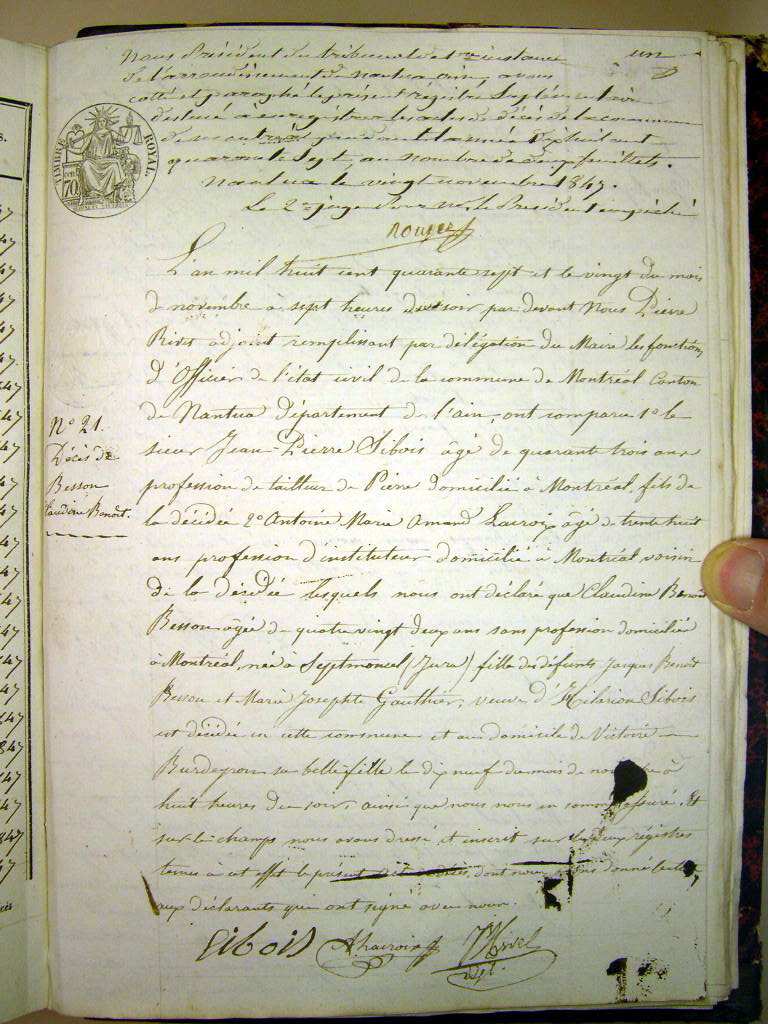 Nous Président du tribunal de 1re instance
de l'arrondissement de Nantua, ain, avons
cotté et paraphé le présent régistre supplémentaire
destiné à enregistrer les actes de décès de la commune
de Montréal pendant l'année dix huit cent
quarante sept, au nombre de deux feuillets.
Nantua le vingt novembre 1847.
Le 2e juge pour Mr. le Président empêché
un
TIMBRE ROYAL
70
L'an mil huit cent quarante sept et le vingt du mois
de novembre à sept heures du soir par devant Nous Pierre
Rivet adjoint remplissant par délégation du Maire les fonctions
d'Officier de l'état civil de la commune de Montréal Canton
de Nantua Département de l'ain, ont comparu 1o le
sieur Jean-Pierre Sibois âgé de quarante trois ans
profession de tailleur de Pierre domicilié à Montréal fils de
la décédée 2o Antoine Marie Amand Lacroix âgé de trente huit
ans profession d'instituteur domicilié à Montréal voisin
de la décédée lesquels nous ont déclaré que Claudine Benoit
Besson âgée de quatre vingt deux ans sans profession domiciliée
à Montréal, née à Septmoncel (Jura) fille des défunts Jacques Benoit
Besson et Marie Josephte Gauthier, veuve d'Hilarion Sibois
est décédée en cette commune et au domicile de Victoire
Burdeyron sa belle-fille le dix neuf du mois de novembre à
huit heures du soir ainsi que nous nous en sommes assuré. Et
sur le champs nous avons dressé et inscrit sur les deux régistres
tenus à cet effet le présent acte de décès, dont nous avons donné lecture
aux déclarants qui ont signé avec nous.
No 21.
Décès de
Besson
Claudine Benoit.
Sibois ALacroix Rivet
adjt.
47